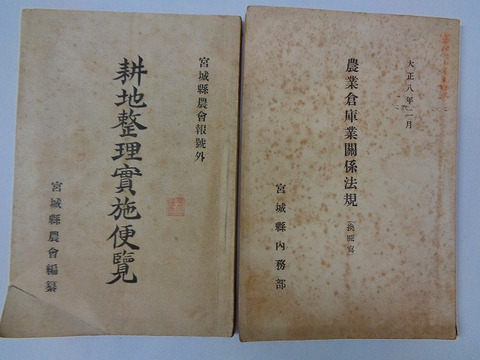 大正八年二月
農業倉庫業關係法規
宮城縣內務部
宮城縣農會報號外
耕地整理實施便覽
宮城縣農會編纂